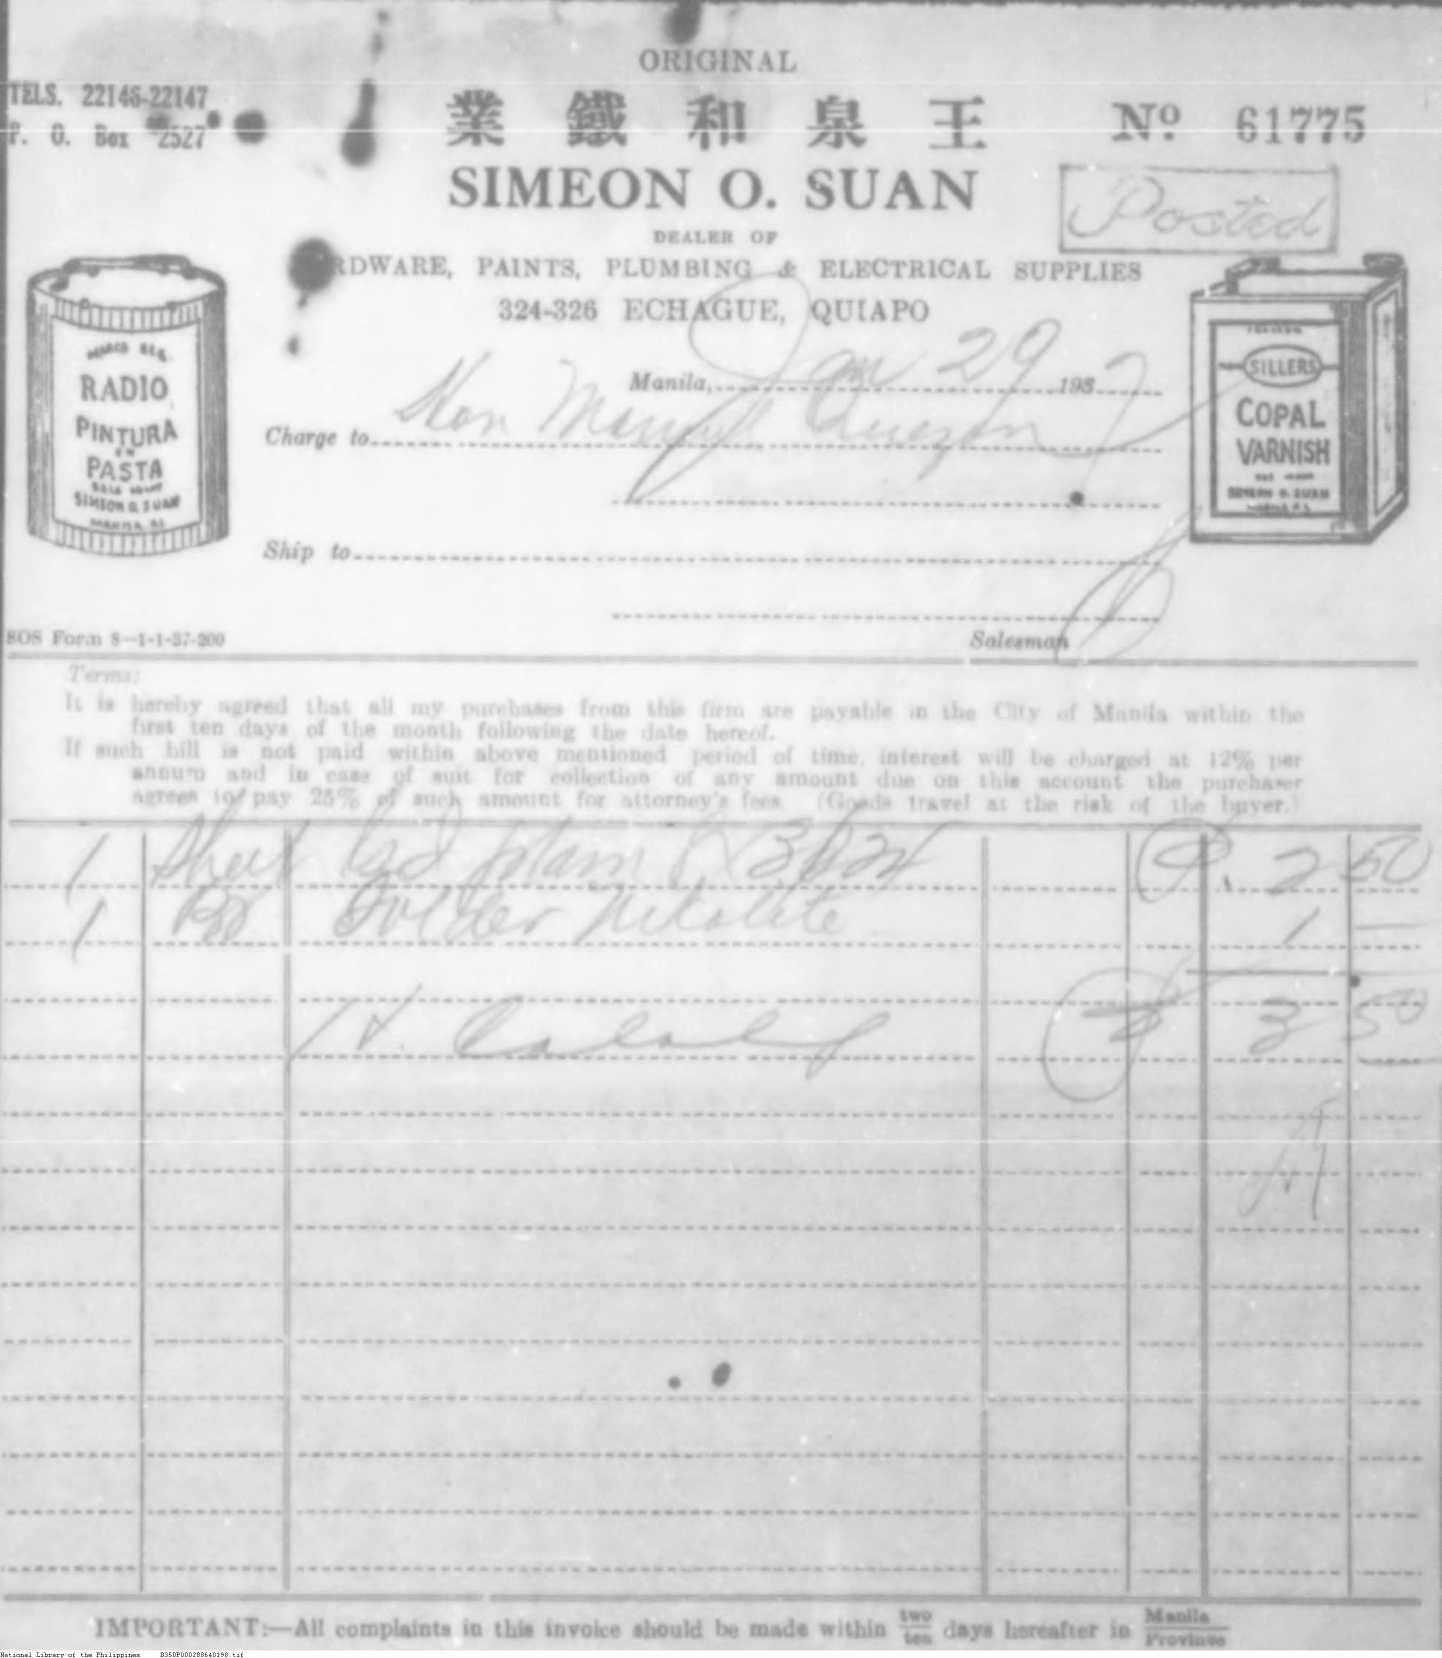 ORIGINAL
TELS. 22146-22147
P. O. Box 2527
業鐵和泉王
Nº 61775
SIMEON O. SUAN
Posted
DEALER OF
RDWARE, PAINTS, PLUMBING & ELECTRICAL SUPPLIES
324-326 ECHAGUE, QUIAPO
MARCA REG.
RADIO
PINTURA
EN
PASTA
SIMEON O. SUAN
MANILA, P.I.
SILLERS
COPAL
VARNISH
SIMEON O. SUAN
MANILA, P.I.
Manila, Jan 29 1937
Charge to Hon Manuel Quezon
Ship to
SOS Form 8—1-1-37-200
Salesman
Terms:
It is hereby agreed that all my purchases from this firm are payable in the City of Manila within the
first ten days of the month following the date hereof.
If such bill is not paid within above mentioned period of time, interest will be charged at 12% per
annum and in case of suit for collection of any amount due on this account the purchaser
agrees to pay 25% of such amount for attorney's fees. (Goods travel at the risk of the buyer.)
1 Sheet Gal plain P. 2 50
1 Solder 1 —
H. 3 50
IMPORTANT:—All complaints in this invoice should be made within two/ten days hereafter in Manila/Province
National Library of the Philippines D350P000288640198.tif